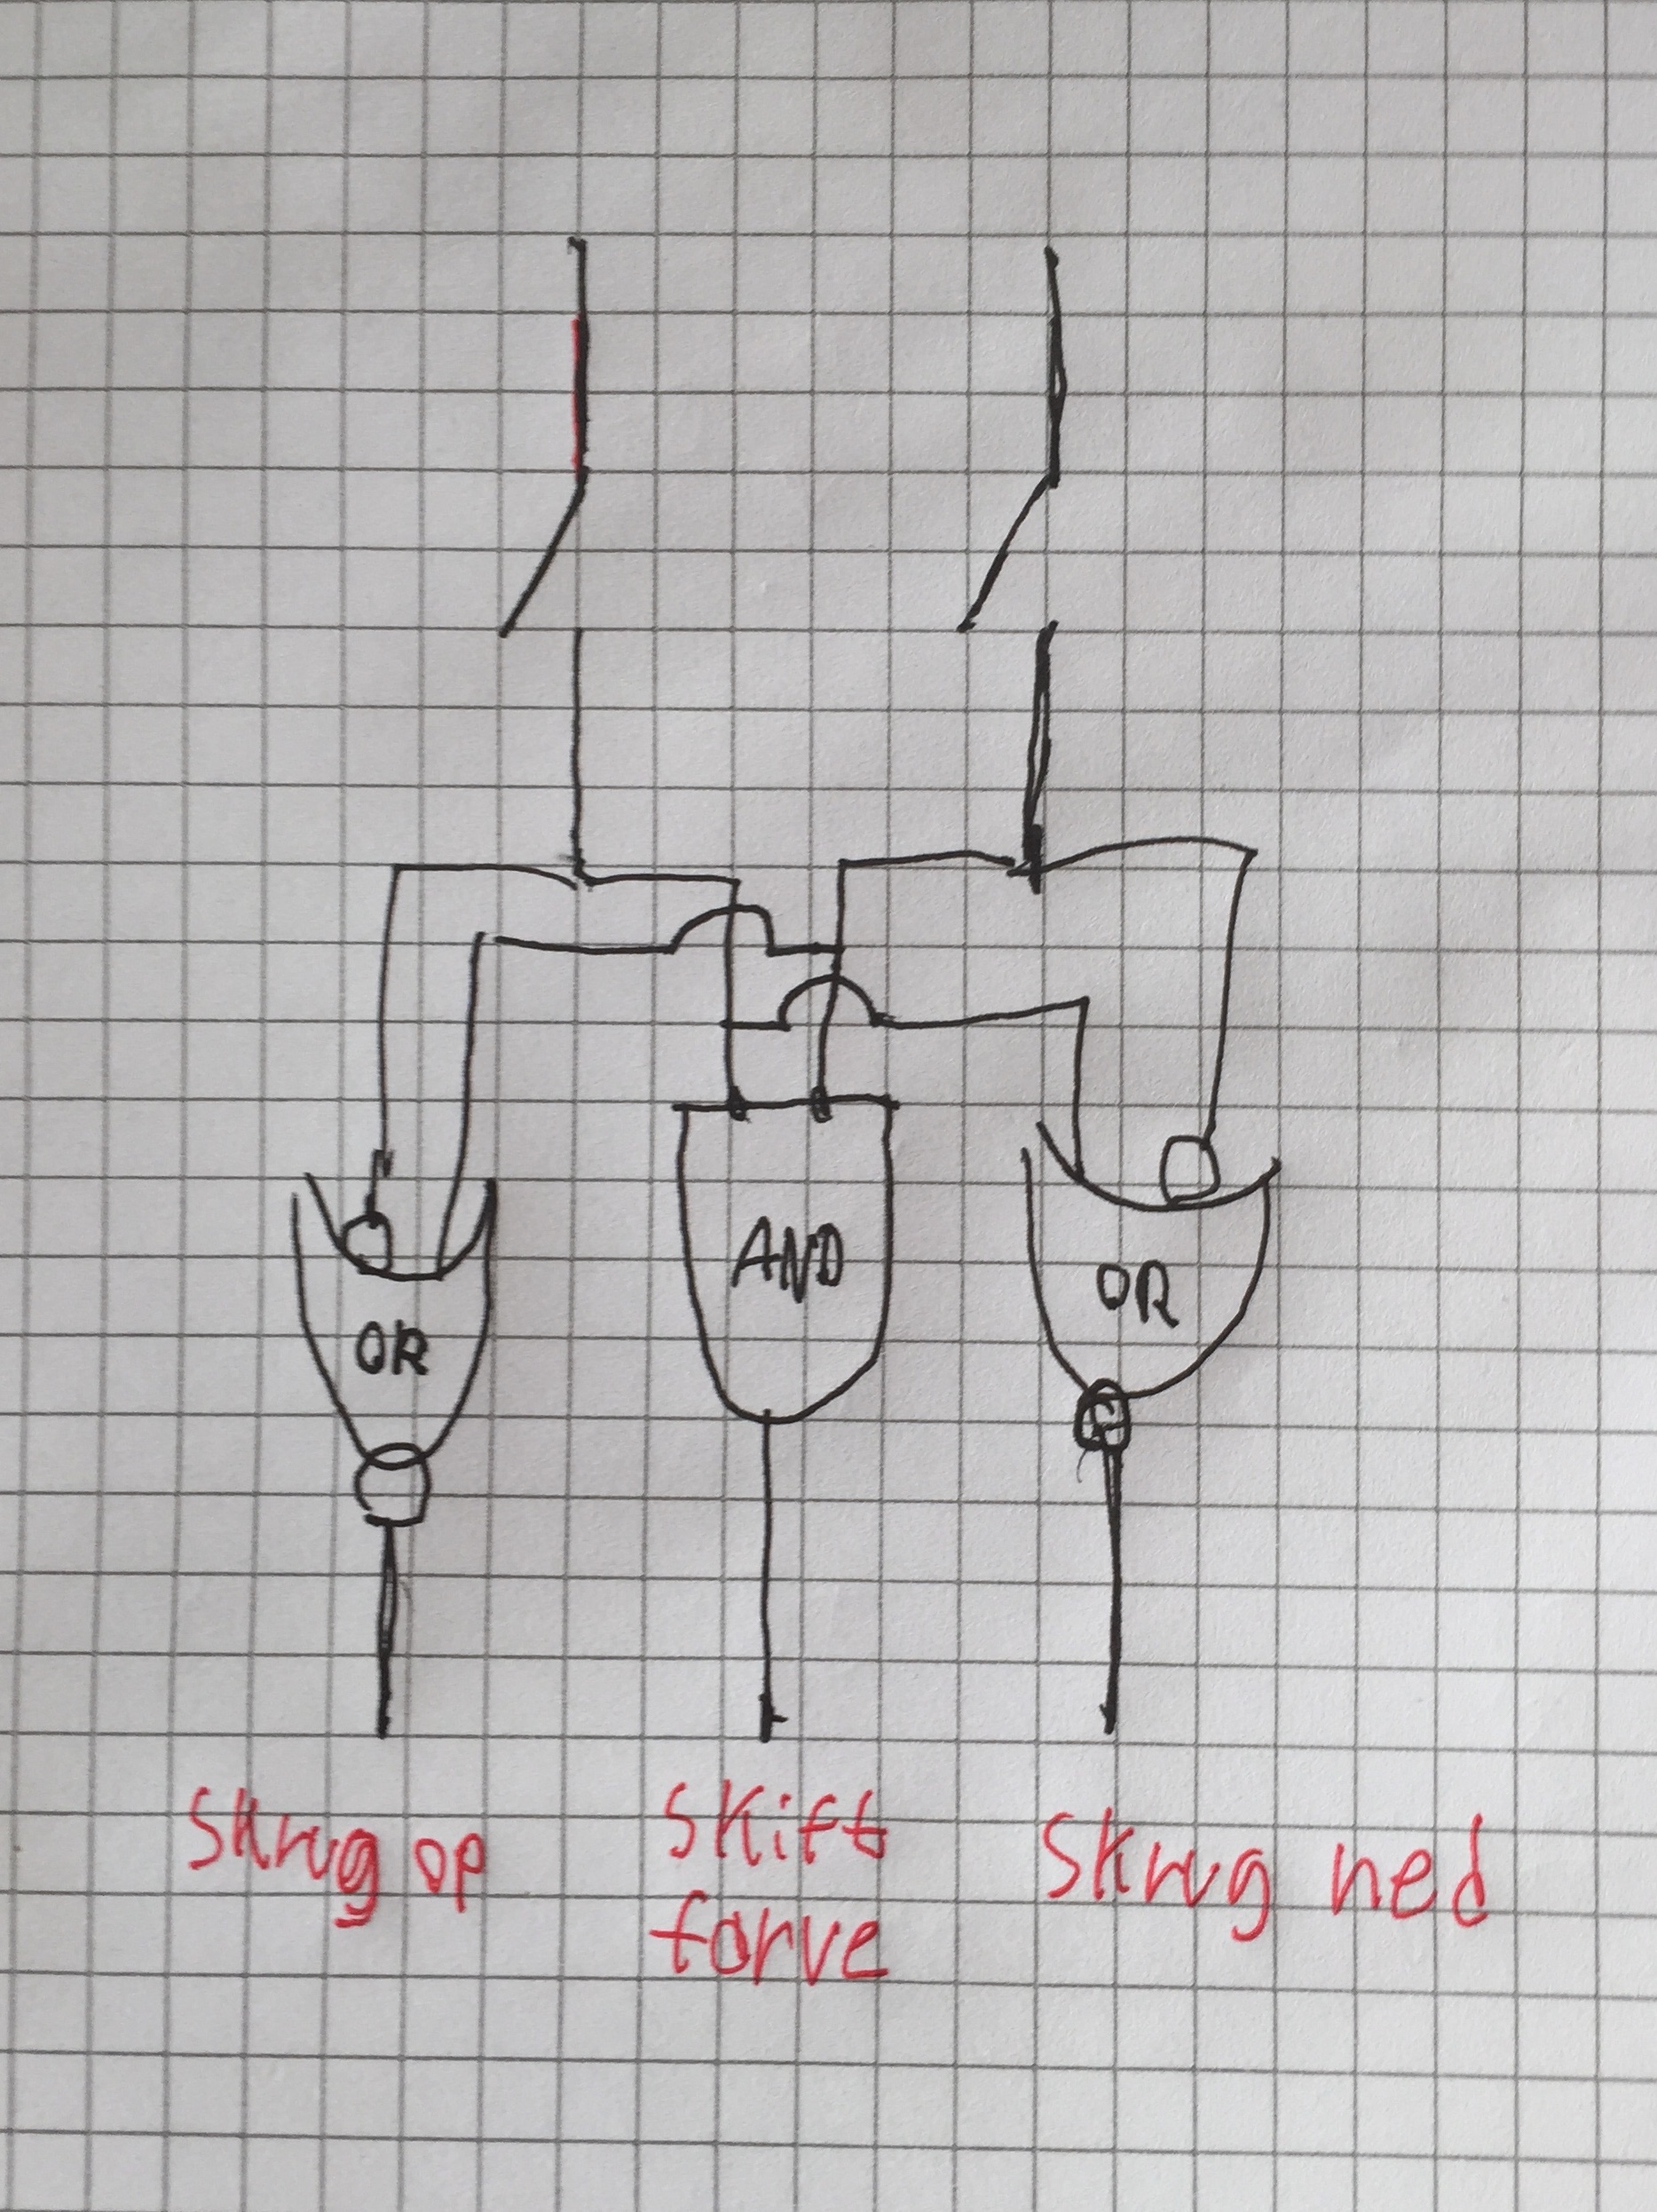 OR
AND
OR
Skrug op
Skift
farve
Skrug ned